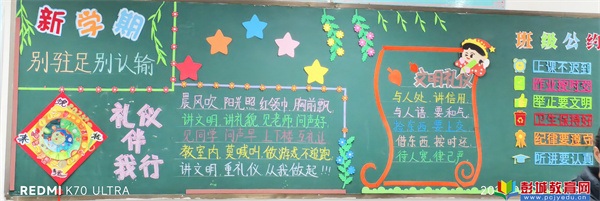 新学期
别驻足别认输
礼仪
伴
我行
晨风吹 阳光照 红领巾 胸前飘
讲文明 讲礼貌 见老师 问声好
见同学 问声早 上下楼
教室内 莫喊叫 做游戏 不超跑
讲文明 重礼仪 从我做起!!!
文明礼仪
与人处 讲信用
与人话 要和气
借东西 按时还
待人宽 律己严
班级公约
上课不迟到
举止要文明
卫生保持好
纪律要遵守
听讲要认真
REDMI K70 ULTRA
彭城教育网
www.pcjyedu.cn